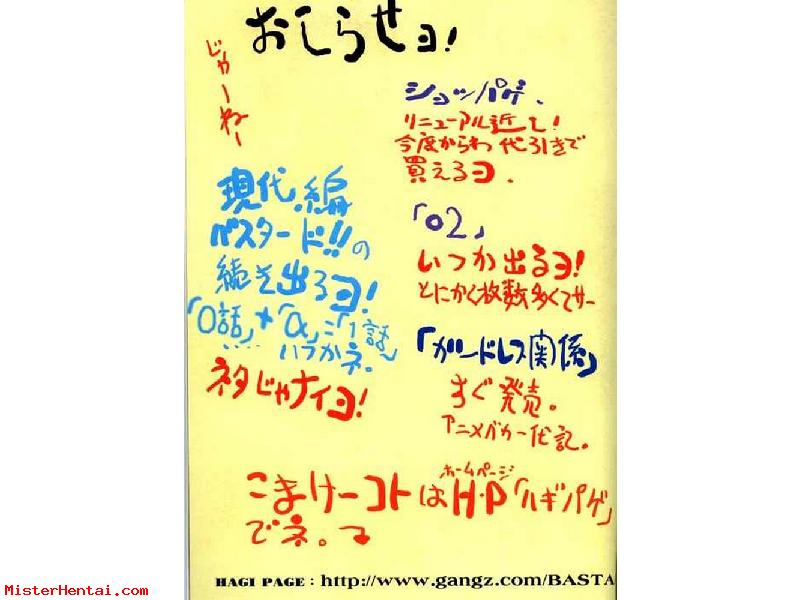 おしらせヨ!
じゃーねー
ショッパゲ、
リニューアル近し!
今度からわ代引きで
買えるヨ.
「02」
いつか出るヨ!
とにかく枚数多くてサー
「ガンドレス関係」
すぐ発売。
アニメバカ一代記。
現代編
バスタード!!の
続き出るヨ!
「0話」+「α」=「1話」
..... いつかネ。
ネタじゃナイヨ!
ホームページ
こまけーコトはH・P「ハギパゲ」
でネ。
HAGI PAGE : http://www.gangz.com/BASTA
MisterHentai.com